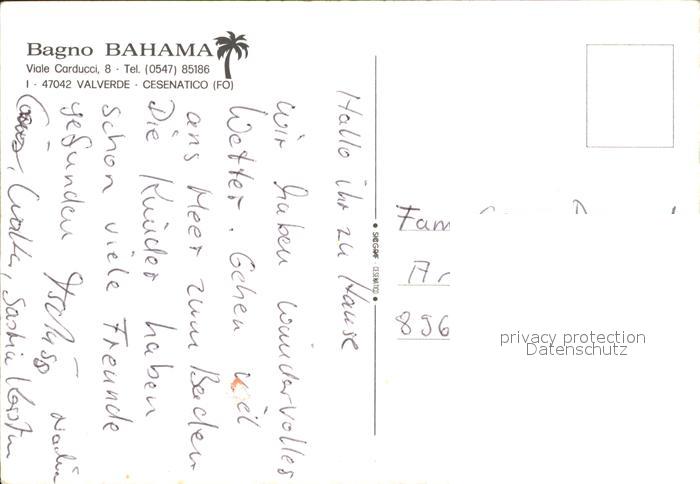 Bagno BAHAMA
Viale Carducci, 8 - Tel. (0547) 85186
I - 47042 VALVERDE - CESENATICO (FO)
Hallo ihr zu Hause
Wir haben wundervolles
Wetter. Gehen viel
ans Meer zum Baden
Die Kinder haben
schon viele Freunde
gefunden Tschüss Nadia
Saskia Kerstin
SICGRAF CESENATICO
Fam
Ar
896
privacy protection
Datenschutz